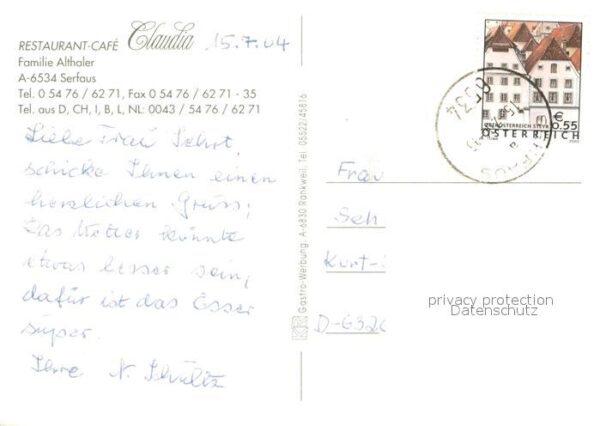 RESTAURANT-CAFÉ Claudia 15.7.04
Familie Althaler
A-6534 Serfaus
Tel. 0 54 76 / 62 71, Fax 0 54 76 / 62 71 - 35
Tel. aus D, CH, I, B, L, NL: 0043 / 54 76 / 62 71
Liebe Frau
schicke Ihnen einen
herzlichen Gruss;
Das Wetter könnte
etwas besser sein,
dafür ist das Essen
super.
Ihre N. Schultz
Gastro-Werbung, A-6830 Rankweil, Tel. 05522/45816
OBERÖSTERREICH STEYR
€ 0.55
ÖSTERREICH
6534
Frau
Seh
Kurt-
D-6326
privacy protection
Datenschutz